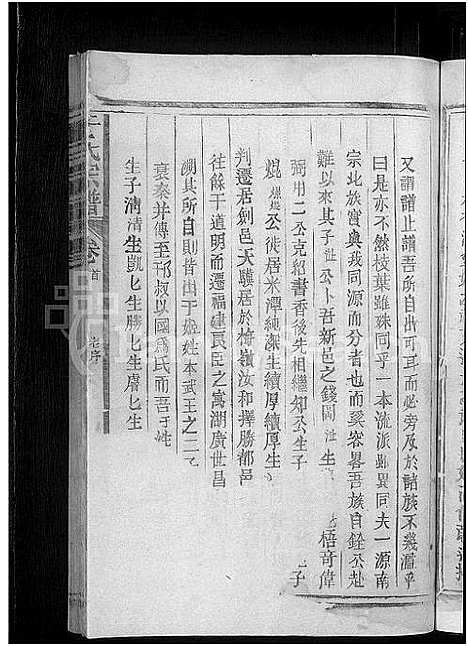 又謂譜止譜吾所自出可耳而必旁及於諸族不幾濫乎
曰是亦不然枝葉雖殊同乎一本流派雖異同夫一源南
宗北族實與我同源而分者也而奚容畧吾族自銓公赴
難以來其子 公卜吾新邑之錢園 生 梧奇偉
弼用二公克紹書香後先相繼知公生子 子
焜 公徙居米潭純 生續厚續厚生
判遷居劍邑天驥居於梅嶺汝和擇勝都邑
往餘于道明而遷福建 臣之寓湖廣世昌
溯其所自則皆出于姬姓本武王之二
衰泰并傳至邗叔以國為氏而吾于姓
生子溯清生凱匕生勝匕生膚匕生
氏宗譜
卷首
序